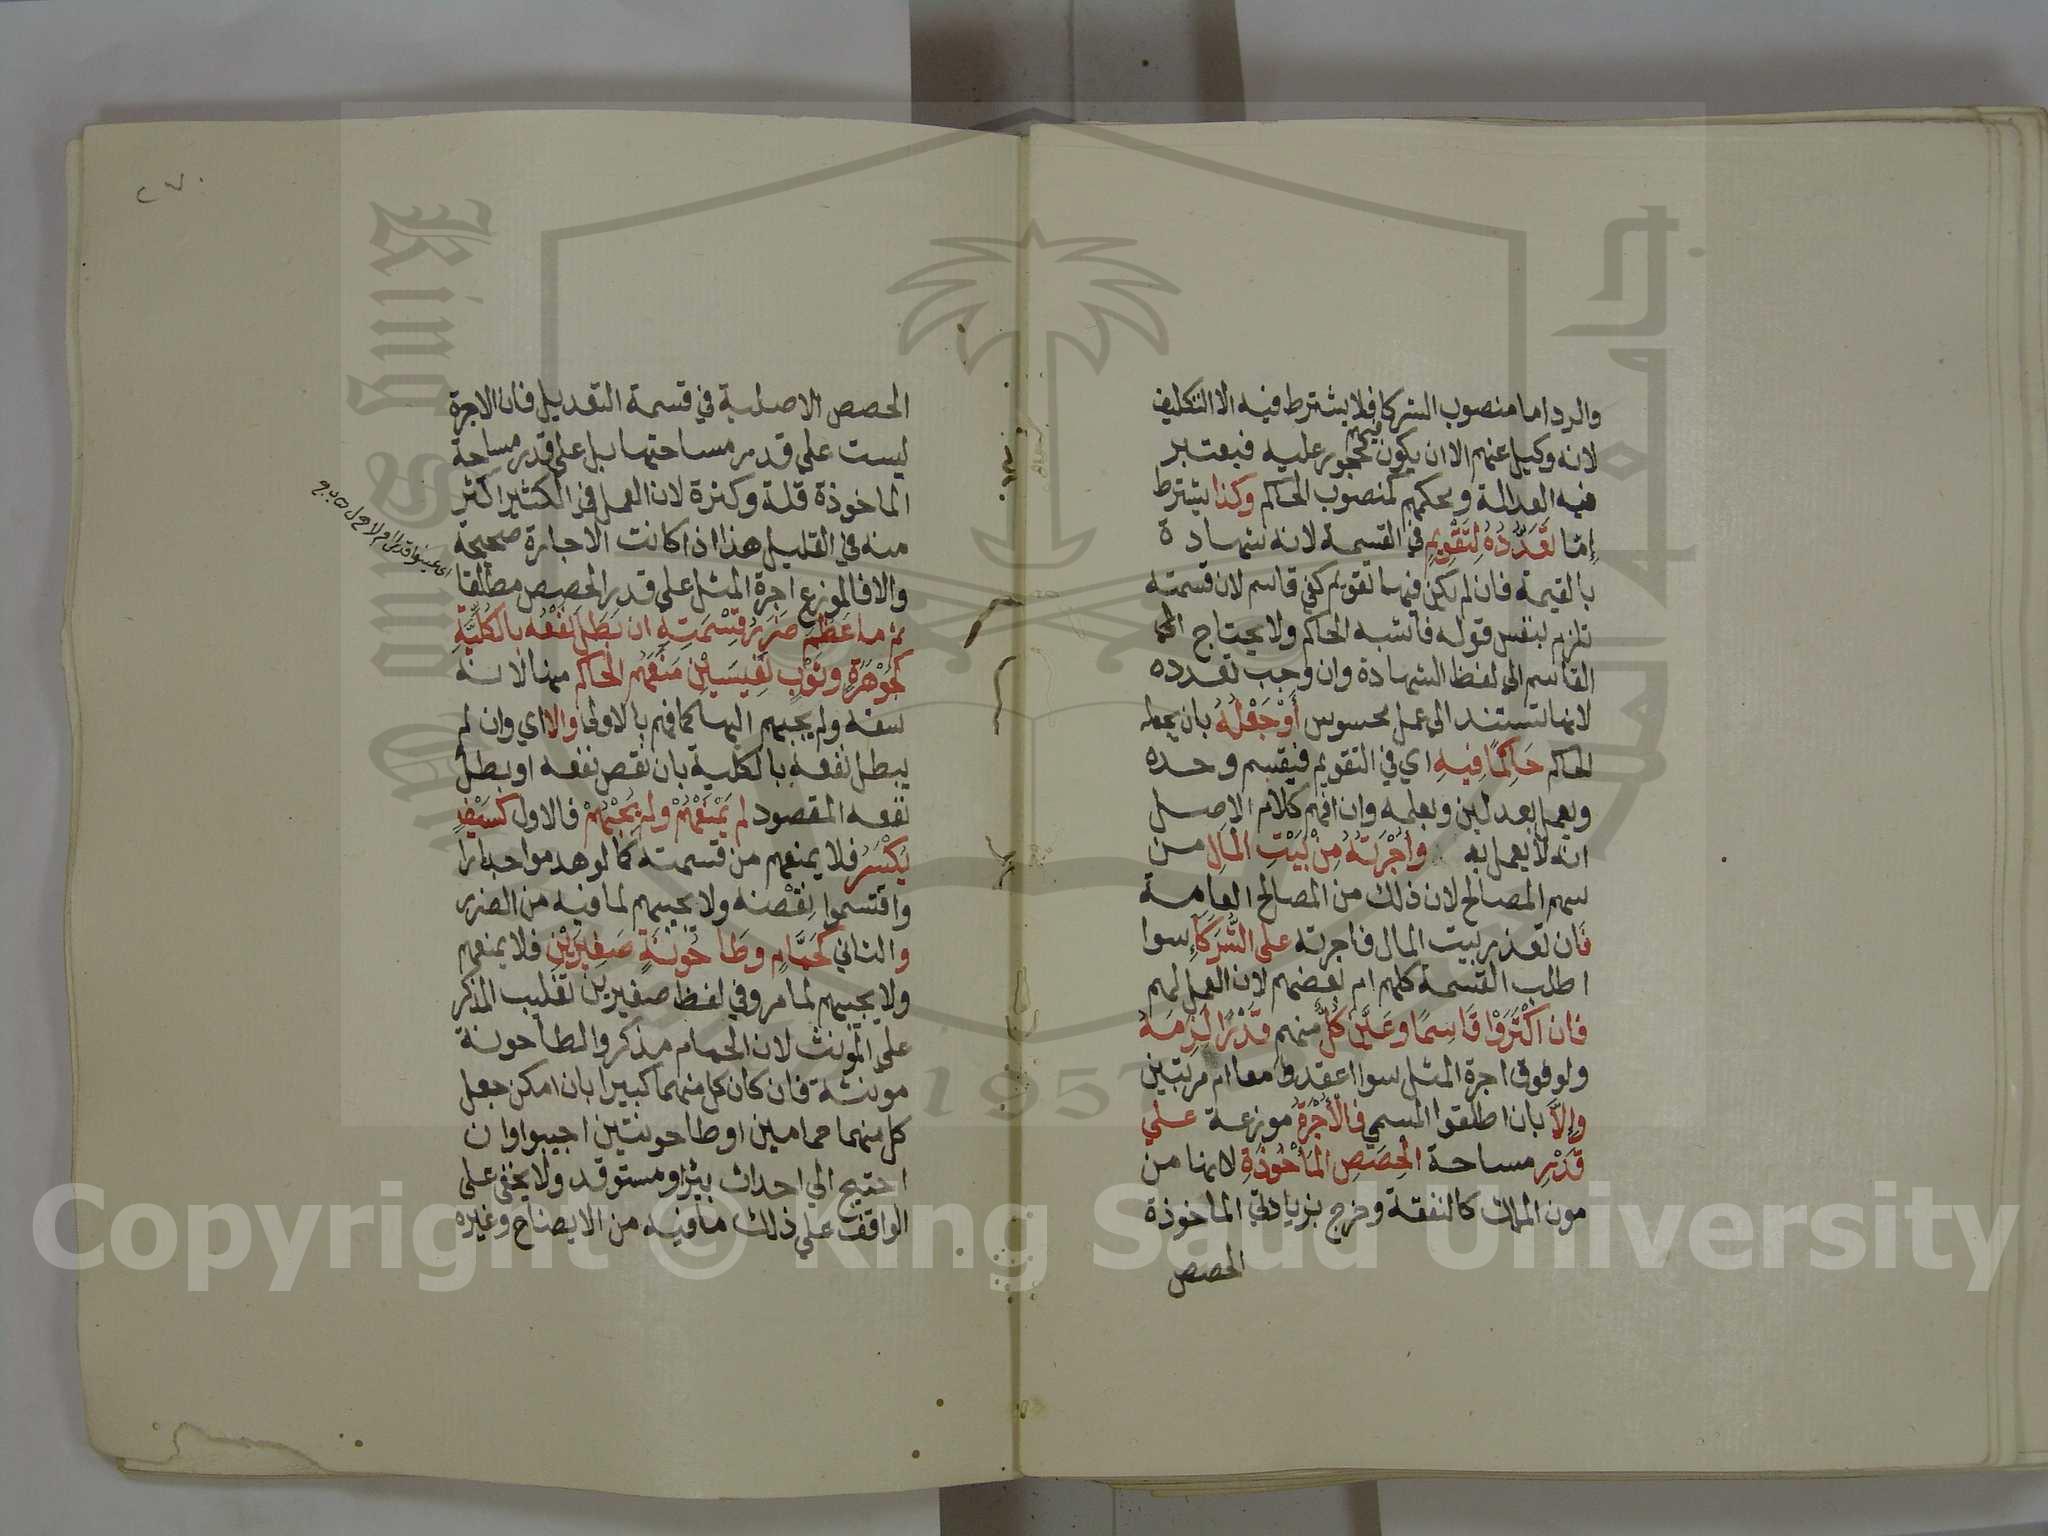 والرد اما منصوب الشركا فلا يشترط فيه الا التكليف
لانه وكيل عنهم الا ان يكون فيهم محجور عليه فيعتبر
فيه العدالة ومحكمهم كمنصوب الحاكم وكذا يشترط
إمّا تَعَدُّدُهُ لِتَقْوِيمٍ في القسمة لانه شهادة
بالقيمة فان لم يكن فيها تقويم كفى قاسم لان قسمته
تلزم بنفس قوله فاشبه الحاكم ولا يحتاج
القاسم الي لفظ الشهادة وان وجب تعدده
لانها تستند الي عمل محسوس أَوْ جَعْلُهُ بان يجعله
الحاكم حَاكِمًا فِيهِ اي في التقويم فيقسم وحده
ويعمل بعدلين وبعلمه وان افهم كلام الاصل
انه لا يعمل به وأُجْرَتُهُ مِنْ بَيْتِ الْمَالِ من
سهم المصالح لان ذلك من المصالح العامة
فان تعذر بيت المال فاجرته على الشُّرَكَاءِ سوا
اطلب القسمة كلهم ام بعضهم لان العمل لهم
فان اكْتَرَوْا قَاسِمًا وعَيَّنَ كُلٌّ منهم قَدْرًا لَزِمَهُ
ولو فوق اجرة المثل سوا اعقدوا معا ام مرتبين
وإِلَّا بان اطلقوا المسمي فالأُجْرَةُ موزعة علي
قَدْرِ مساحة الْحِصَصِ المَأْخُوذَةِ لانها من
مون الملك كالنفقة وخرج بزيادتي الماخوذة
الحصص
٢٧٠
الحصص الاصلية في قسمة التعديل فان الاجرة
ليست علي قدر مساحتها بل علي قدر مساحة
الماخوذة قلة وكثرة لان العمل في الكثير اكثر
منه في القليل هذا اذا كانت الاجارة صحيحة
والا فالموزع اجرة المثل علي قدر الحصص مطلقا
ثم ما عَظُمَ ضَرَرُ قِسْمَتِهِ ان بَطَلَ نَفْعُهُ بالكُلِّيَّةِ
كَجَوْهَرَةٍ وثَوْبٍ نَفِيسَيْنِ مَنَعَهُم الحاكم منها لانه
سفه ولم يجبهم اليها كما فهم بالاولى والا اي وان لم
يبطل نفعه بالكلية بان نقص نفعه او بطل
نفعه المقصود لم يَمْنَعْهُمْ ولم يُجِبْهُمْ فالاول كسَيْفٍ
يُكْسَرُ فلا يمنعهم من قسمته كما لو هدموا جدارا
واقتسموا نقضه ولا يجيبهم لما فيه من الضرر
والثاني كَحَمَّامٍ وطَاحُونَةٍ صَغِيرَيْنِ فلا يمنعهم
ولا يجيبهم لما مر وفي لفظ صغيرين تغليب المذكر
علي المونث لان الحمام مذكر والطاحونة
مونثة فان كان كل منهما كبيرا بان امكن جعل
كل منهما حمامين او طاحونتين اجيبوا وان
احتيج الي احداث بئر او مستوقد ولا يخفى على
الواقف علي ذلك ما فيه من الايضاح وغيره
Copyright © King Saud University
King Saud University
جامعة الملك سعود
1957